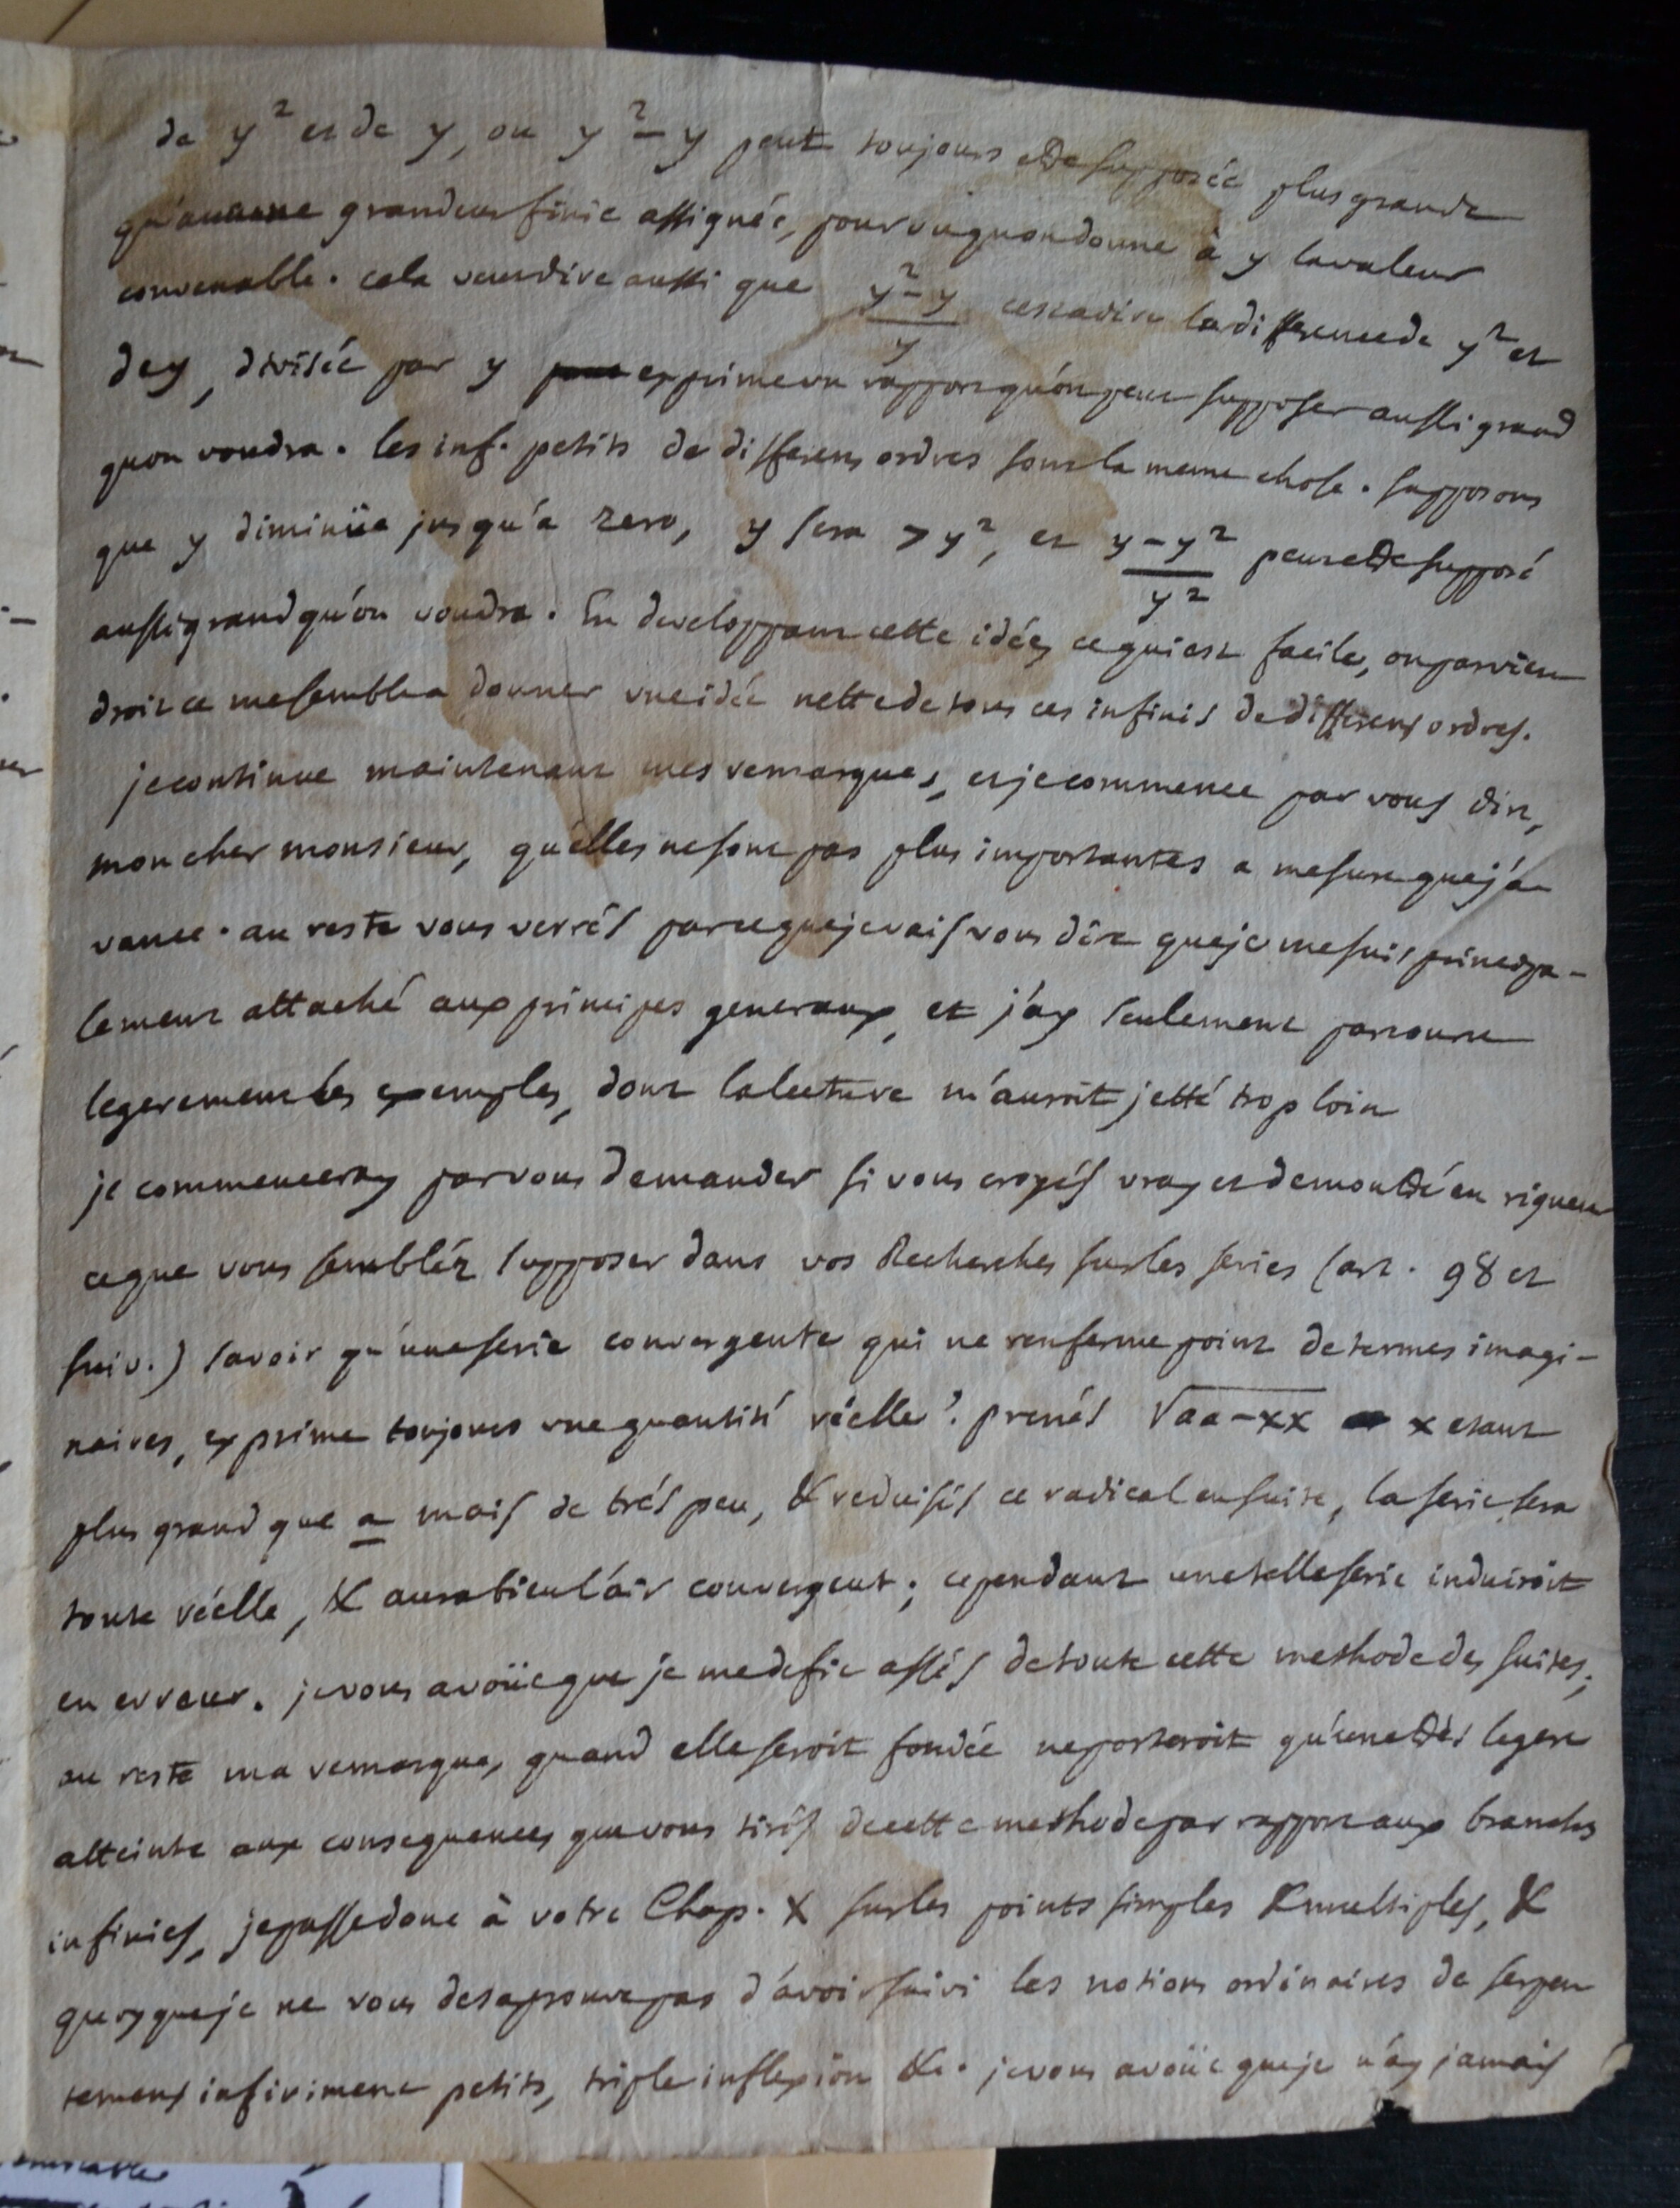 de y² et de y, ou y² - y peut toujours etre supposée plus grande
qu'aucune grandeur finie assignée, pourvu qu'on donne à y la valeur
convenable. cela veut dire aussi que (y² - y)/y cest a dire la difference de y² et
de y, divisée par y exprime un rapport qu'on peut supposer aussi grand
qu'on voudra. les inf. petits de differens ordres sont la meme chose. supposons
que y diminüe jusqu'a zero, y sera > y², et (y - y²)/y² peut etre supposé
aussi grand qu'on voudra. En developpant cette idée, ce qui est facile, on parvien
droit ce me semble a donner une idée nette de tous ces infinis de differens ordres.
je continue maintenant mes remarques, et je commence par vous dire,
mon cher monsieur, qu'elles ne sont pas plus importantes a mesure que j'a
vance. au reste vous verrés par ce que je vais vous dire que je me suis principa-
lement attaché aux principes generaux, et j'ay seulement parcouru
legerement les exemples, dont la lecture m'auroit jetté trop loin
je commenceray par vous demander si vous croyés vray et demontré en rigueur
ce que vous sembléz supposer dans vos Recherches sur les series (art. 98 et
suiv.) savoir qu'une serie convergente qui ne renferme point de termes imagi-
naires, exprime toujours une quantité réelle?. prenés √aa-xx x etant
plus grand que a mais de trés peu, & reduisés ce radical en suite, la serie sera
toute réelle, & aura bien l'air convergent; cependant une telle serie induiroit
en erreur. je vous avoüe que je me defie assés de toute cette methode des suites;
au reste ma remarque, quand elle seroit fondée ne porteroit qu'une trés legere
atteinte aux consequences que vous tirés de cette methode par rapport aux branches
infinies, je passe donc à votre Chap. X sur les points simples & multiples, &
quoyque je ne vous desaprouve pas d'avoir suivi les notions ordinaires de serpen
temens infiniment petits, triple inflexion &c. je vous avoüe que je n'ay jamais